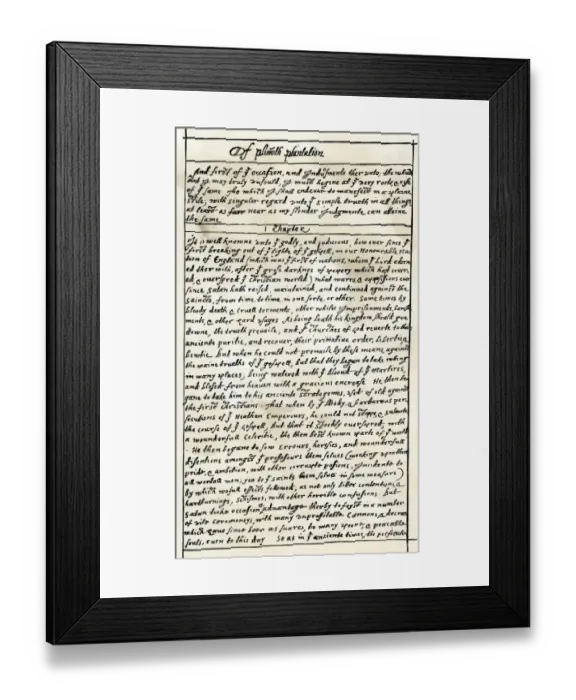 Of plimoth plantation
And first of yͤ occasion, and Indusments ther unto; the which
that I may truly unfould, I must begine at yͤ very roote & rise
of yͤ same. The which I shall endevor to manefest in a plaine
stile; with singuler regard unto yͤ simple trueth in all things,
at least as far near as my slender Judgmente can attaine
the same.
1 Chapter
It is well knowne unto yͤ godly, and judicious, how ever since yͤ
first breaking out of yͤ light of yͤ gospell, in our Honourable Na-
tion of England (which was yͤ first of nations, whom yͤ Lord adorn-
ed ther with, after yͤ grosse darknes of popery which had cover-
ed & overspred yͤ Christian world) what warrs, & oppossitions ever
since Satan hath raised, maintained, and continued against the
Saincts, from time, to time, in one sorte, or other. Some times by
bloody death & cruell torments; other whiles Imprisonments, banish-
ments, & other hard usages. As being loath his kingdom should goe
downe, the trueth prevaile; and yͤ Churches of God reverte to their
anciente puritie; and recover, their primative order, libertie, &
bewtie. But when he could not prevaile by these means, against
the maine trueths of yͤ gospell, but that they began to take rooting
in many places; being watered with yͤ bloud of yͤ martires,
and blessed from heaven with a gracious encrease. He then be-
gane to take him to his anciente strategemes, used of old against
the first Christians. That when by yͤ bloody, & barbarous per-
secutions of yͤ Heathen Emperours, he could not stoppe, & subverte
the course of yͤ Gospell; but that it speedily overspred, with
a wounderfull celeritie, the then best known parts of yͤ world.
He then begane to sow errours, heresies, and wounderfull
disentions amongst yͤ professours them selves (working upon their
pride, & ambition, with other corrupte passions, Incidente to
all mortall men; yea to yͤ saints them selves in some measure)
by which wofull effects followed; as not only bitter contentions, &
hartburnings, schismes, with other horrible confusions. But
Satan tooke occasion & advantage therby to foyst in a number
of vile ceremoneys, with many unprofitable Cannons, & decrees
which have since been as snares, to many poore, & peaceable
souls, even to this day. So as in yͤ anciente times, the persecutions